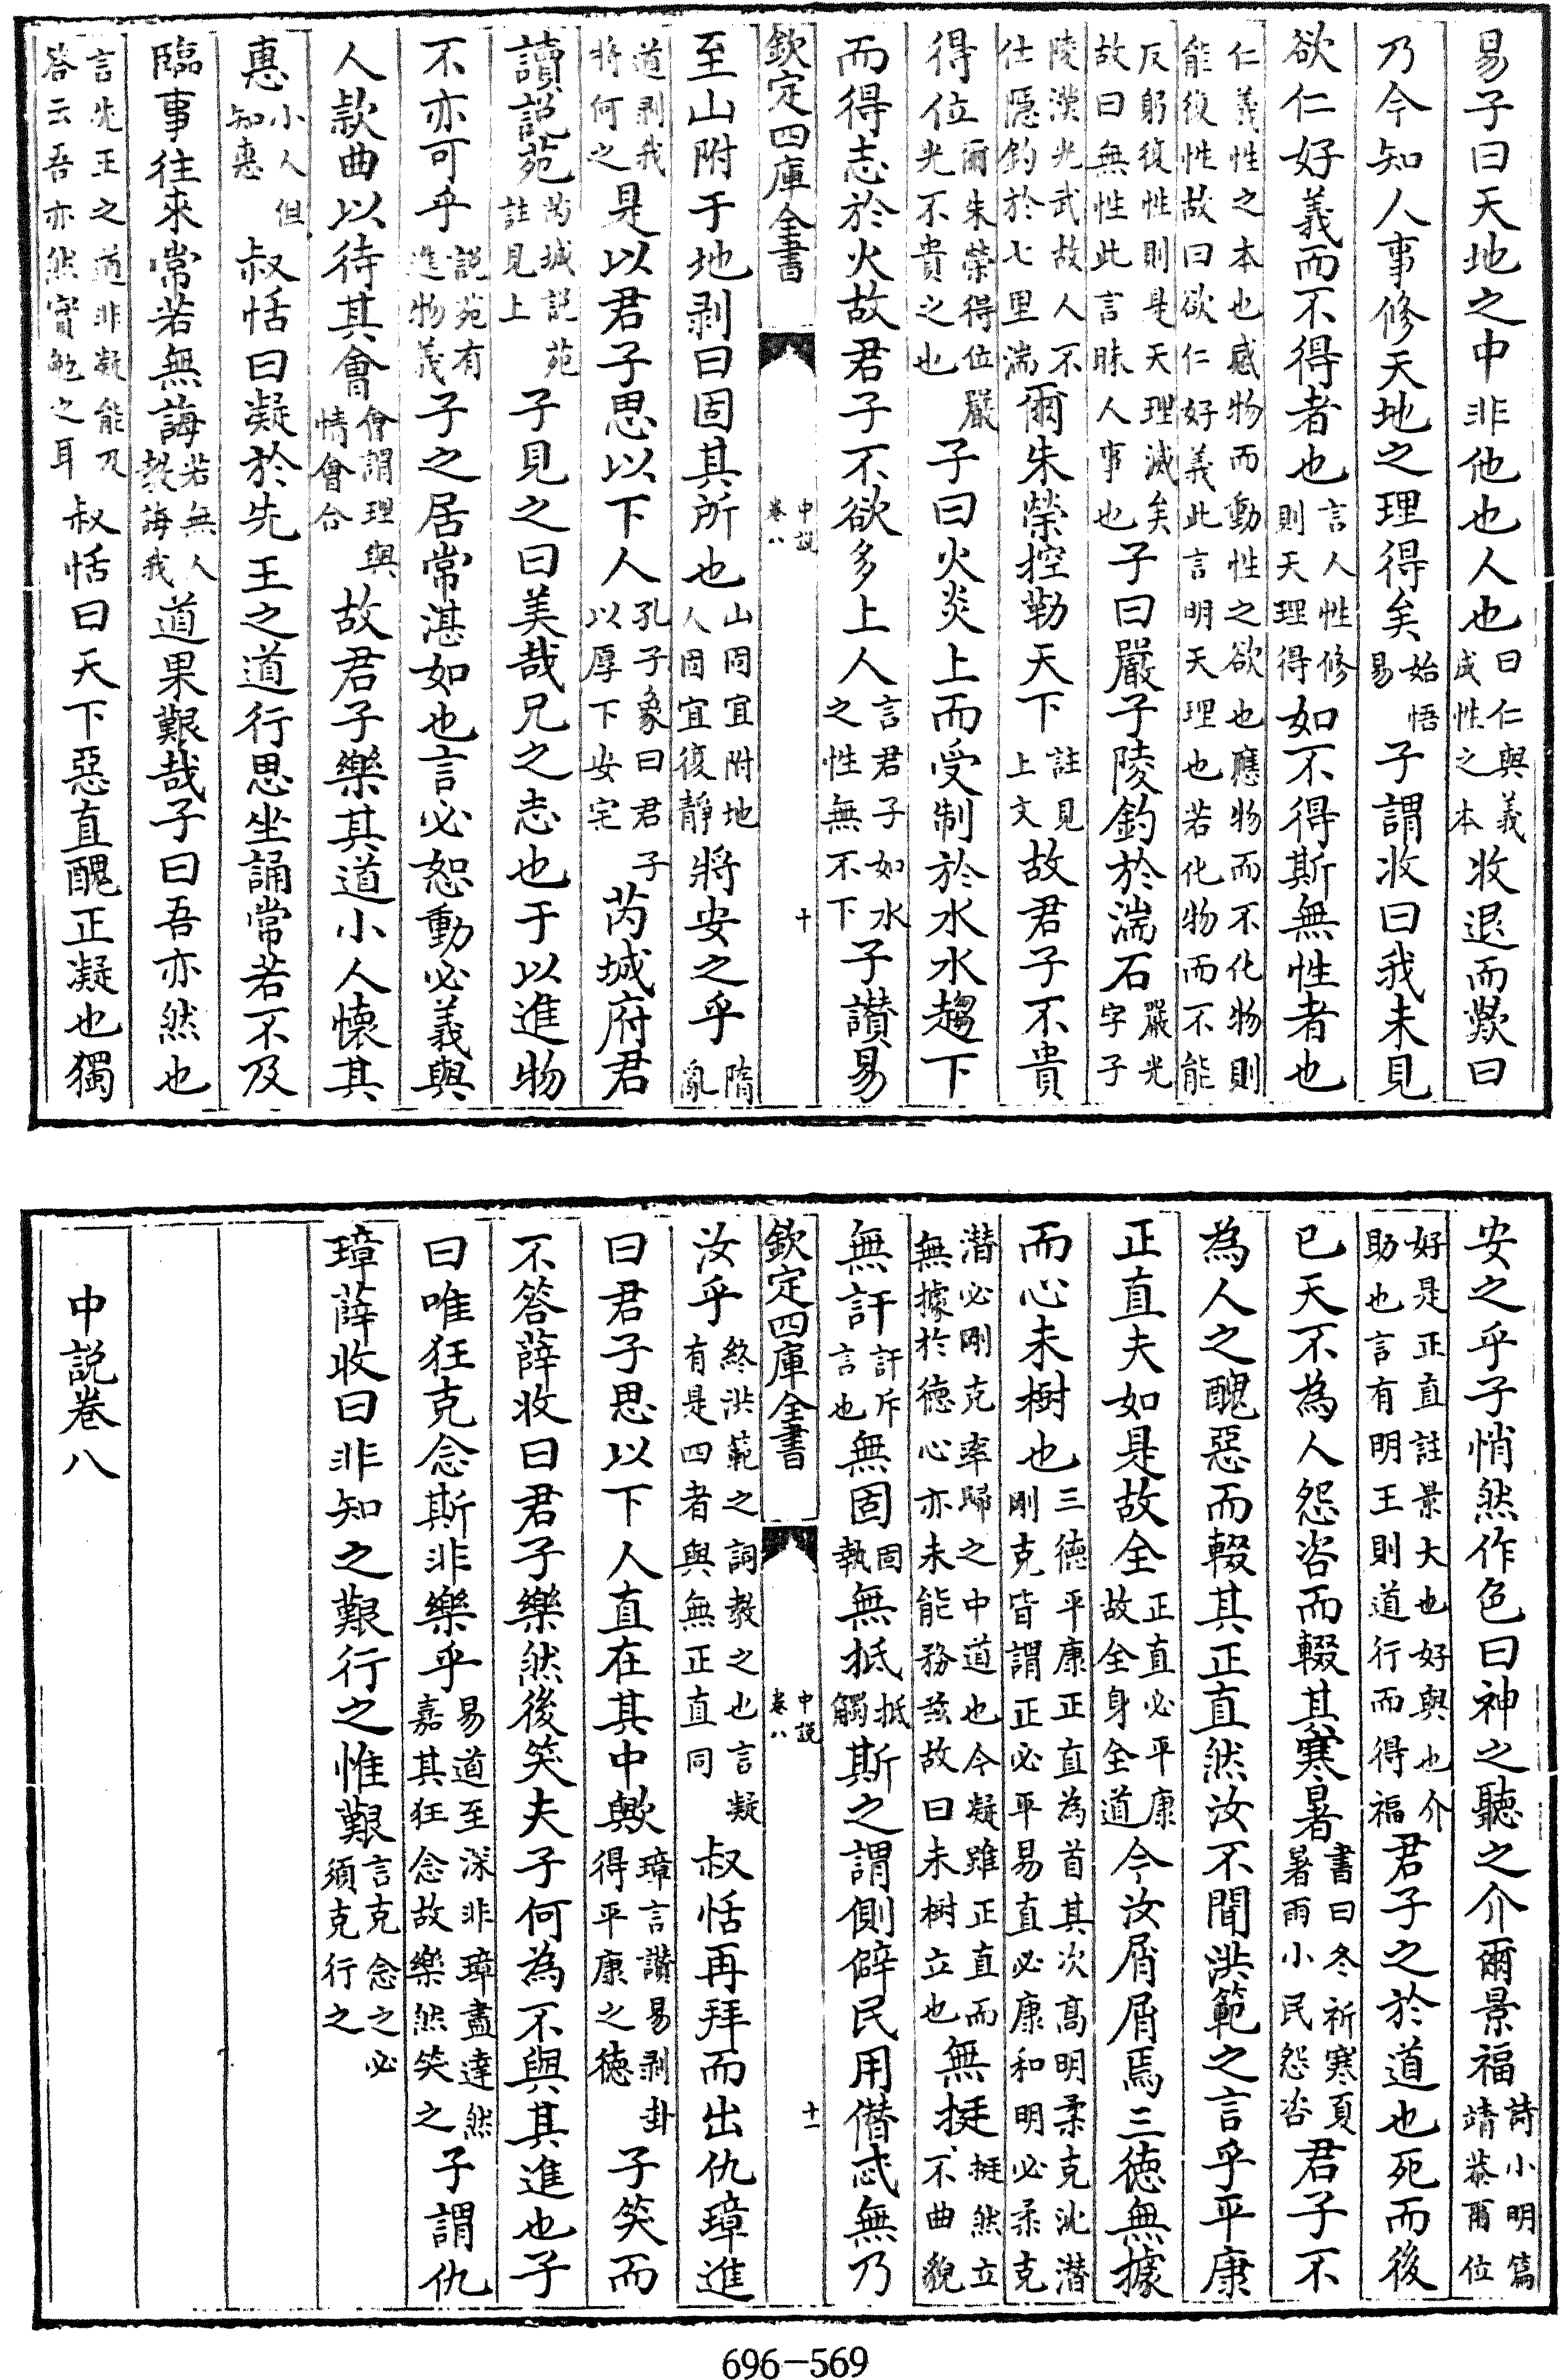 易子曰天地之中非他也人也曰仁與義成性之本收退而歎曰
乃今知人事修天地之理得矣始悟易子謂收曰我未見
欲仁好義而不得者也言人性修則天理得如不得斯無性者也
仁義性之本也感物而動性之欲也應物而不化物則
能復性故曰欲仁好義此言明天理也若化物而不能
反躬復性則是天理滅矣
故曰無性此言昧人事也子曰嚴子陵釣於湍石嚴光字子
陵漢光武故人不
仕隱釣於七里湍爾朱榮控勒天下註見上文故君子不貴
得位爾朱榮得位嚴光不貴之也子曰火炎上而受制於水水趨下
而得志於火故君子不欲多上人言君子如水之性無不下子讚易
欽定四庫全書 中說卷八 十
至山附于地剥曰固其所也山固宜附地人固宜復靜將安之乎隋亂
道剥我將何之是以君子思以下人孔子象曰君子以厚下安宅芮城府君
讀説苑芮城説苑註見上子見之曰美哉兄之志也于以進物
不亦可乎説苑有進物義子之居常湛如也言必恕動必義與
人款曲以待其會會謂理與情會合故君子樂其道小人懷其
惠小人但知惠叔恬曰凝於先王之道行思坐誦常若不及
臨事往來常若無誨若無人教誨我道果艱哉子曰吾亦然也
言先王之道非凝能及
答云吾亦然實勉之耳叔恬曰天下惡直醜正凝也獨
安之乎子悄然作色曰神之聽之介爾景福詩小明篇靖恭爾位
好是正直註景大也好與也介
助也言有明王則道行而得福君子之於道也死而後
已天不為人怨咨而輟其寒暑書曰冬祈寒夏暑雨小民怨咨君子不
為人之醜惡而輟其正直然汝不聞洪範之言乎平康
正直夫如是故全正直必平康故全身全道今汝屑屑焉三德無據
而心未樹也三德平康正直為首其次高明柔克沈潛剛克皆謂正必平易直必康和明必柔克
潛必剛克率歸之中道也今凝雖正直而
無據於德心亦未能務茲故曰未樹立也無挺挺然立不曲貌
無訐訐斥言也無固固執無抵抵觸斯之謂側僻民用僭忒無乃
欽定四庫全書 中說卷八 十一
汝乎終洪範之詞教之也言凝有是四者與無正直同叔恬再拜而出仇璋進
曰君子思以下人直在其中歟璋言讚易剥卦得平康之德子笑而
不答薛收曰君子樂然後笑夫子何為不與其進也子
曰唯狂克念斯非樂乎易道至深非璋盡達然嘉其狂念故樂然笑之子謂仇
璋薛收曰非知之艱行之惟艱言克念之必須克行之
中説卷八
696-569